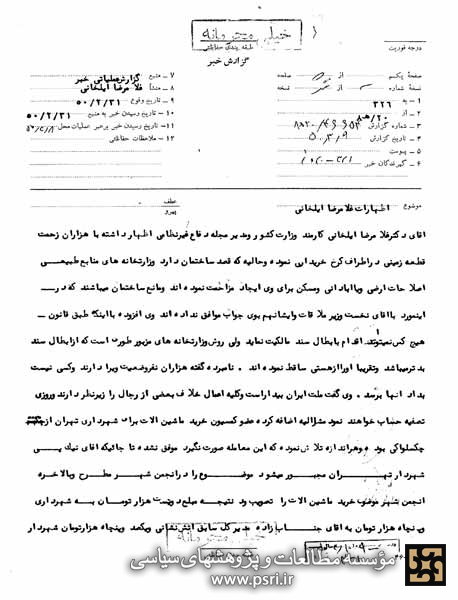 خیلی محرمانه
طبقه بندی حفاظتی
گزارش خبر
درجه فوریت
صفحه یکم از صفحه
نسخه شماره از نسخه
۱ – به ۳۲۶
۲ – از ۲۰ ه‍ ۸
۳ – شماره گزارش
۴ – تاریخ گزارش ۵۰/۳/۹
۵ – پیوست
۶ – گیرندگان خبر
۷ – منبع گزارش عملیاتی خبر
۸ – منشأ غلامرضا ایلخانی
۹ – تاریخ وقوع ۵۰/۲/۳۱
۱۰ – تاریخ رسیدن خبر به منبع ۵۰/۲/۳۱
۱۱ – تاریخ رسیدن خبر به رهبر عملیات محل
۱۲ – ملاحظات حفاظتی
موضوع اظهارات غلامرضا ایلخانی
عطف
پیرو
اقای دکترغلا مرضا ایلخانی کارمند وزارت کشور ومدیر مجله دفاع غیرنظامی اظهارداشته با هزاران زحمت
قطعه زمینی دراطراف کرج خریداری نموده وحالیه که قصد ساختمان دارد وزارتخانه های منابع طبیعی
اصلاحات ارضی ویاابادانی ومسکن برای وی ایجاد مزاحمت نموده اند ومانع ساختمان میباشند که در
اینمورد بااقای نخست وزیر ملاقات وایشانهم بوی جواب موافق نداده اند وی افزوده بااینکه طبق قانون
هیچ کس نمیتواند اقدام بابطال سند مالکیت نماید ولی روش وزارتخانه های مزبور طوری است که ازابطال سند
بدترمیباشد وتقریبا اورااز هستی ساقط نموده اند . نامبرده گفته هزاران نفروضعیت ویرا دارند وکسی نیست
بداد انها برسد . وی گفت ملت ایران بیداراست وکلیه اعمال خلاف بعضی از رجال را زیرنظر دارند وروزی
تصفیه حساب خواهند نمود مشارالیه اضافه کرده عضو کمسیون خرید ماشین الات برای شهرداری تهران از
چکسلواکی بوده وهراندازه تلاش نموده که این معامله صورت نگیرد موفق نشده تا جائیکه اقای نیک پی
شهردار تهران مجبور میشود موضوع را درانجمن شهر مطرح وبالاخره
انجمن شهر خرید ماشین الات را تصویب ودر نتیجه مبلغ دویست هزار تومان به شهرداری
وپنجاه هزار تومان به اقای زاده مدیرکل سابق اتش نشانی ویکصد وپنجاه هزارتومان شهردار
خیلی محرمانه
مؤسسه مطالعات و پژوهشهای سیاسی
www.psri.ir